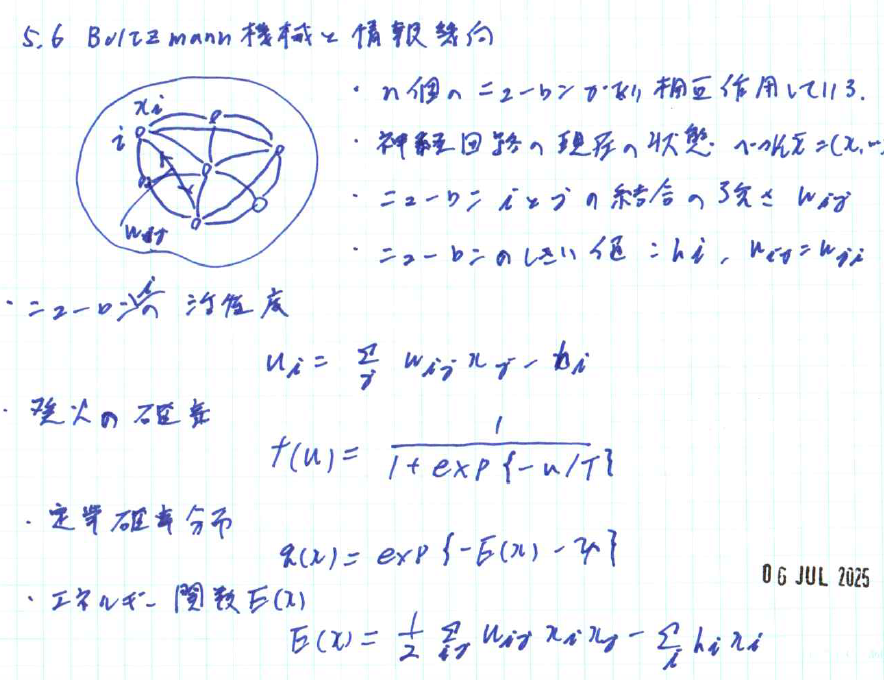 5.6 Boltzmann 機械と情報幾何
xi
i
wij
・n個のニューロンがあり相互作用している.
・神経回路の現在の状態 ベクトル x = (x1 …
・ニューロン i と j の結合の強さ wij
・ニューロンのしきい値 : hi, wij = wji
・ニューロン i の活性度
ui = Σj wij xj - hi
・発火の確率
f(u) = 1 / 1 + exp {-u/T}
・定常確率分布
q(x) = exp {-E(x) - ψ}
06 JUL 2025
・エネルギー関数 E(x)
E(x) = 1/2 Σij wij xi xj - Σi hi xi